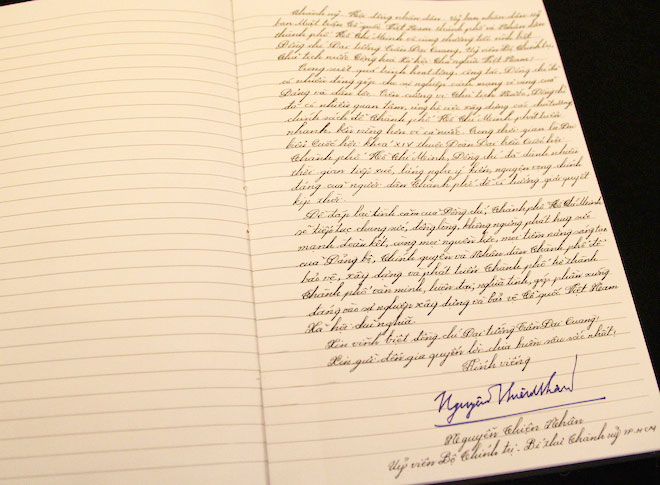 Thành ủy - Hội đồng nhân dân - Uỷ ban nhân dân - Uỷ
ban Mặt trận Tổ quốc Việt Nam thành phố và Nhân dân
thành phố Hồ Chí Minh vô cùng thương tiếc vĩnh biệt
Đồng chí Đại tướng Trần Đại Quang, Uỷ viên Bộ Chính trị,
Chủ tịch nước Cộng hòa Xã hội Chủ nghĩa Việt Nam!
Trong suốt quá trình hoạt động, công tác, Đồng chí đã
có nhiều đóng góp cho sự nghiệp cách mạng vẻ vang của
Đảng và dân tộc. Trên cương vị Chủ tịch Nước, Đồng chí
đã có nhiều quan tâm, ủng hộ việc xây dựng các chủ trương,
chính sách để Thành phố Hồ Chí Minh phát triển
nhanh, bền vững hơn vì cả nước. Trong thời gian là Đại
biểu Quốc hội khoá XIV thuộc Đoàn Đại biểu Quốc hội
Thành phố Hồ Chí Minh, Đồng chí đã dành nhiều
thời gian tiếp xúc, lắng nghe ý kiến, nguyện vọng chính
đáng của người dân Thành phố để có hướng giải quyết
kịp thời.
Để đáp lại tình cảm của Đồng chí, Thành phố Hồ Chí Minh
sẽ tiếp tục chung sức, đồng lòng, không ngừng phát huy sức
mạnh đoàn kết, cùng mọi nguồn lực, mọi tiềm năng sáng tạo
của Đảng bộ, Chính quyền và Nhân dân Thành phố để
bảo vệ, xây dựng và phát triển Thành phố trở thành
Thành phố văn minh, hiện đại, nghĩa tình, góp phần xứng
đáng vào sự nghiệp xây dựng và bảo vệ Tổ quốc Việt Nam
Xã hội chủ nghĩa.
Xin vĩnh biệt đồng chí Đại tướng Trần Đại Quang!
Xin gửi đến gia quyến lời chia buồn sâu sắc nhất!
Kính viếng
Nguyễn Thiện Nhân
Nguyễn Thiện Nhân
Uỷ viên Bộ Chính trị - Bí thư Thành uỷ TP. HCM